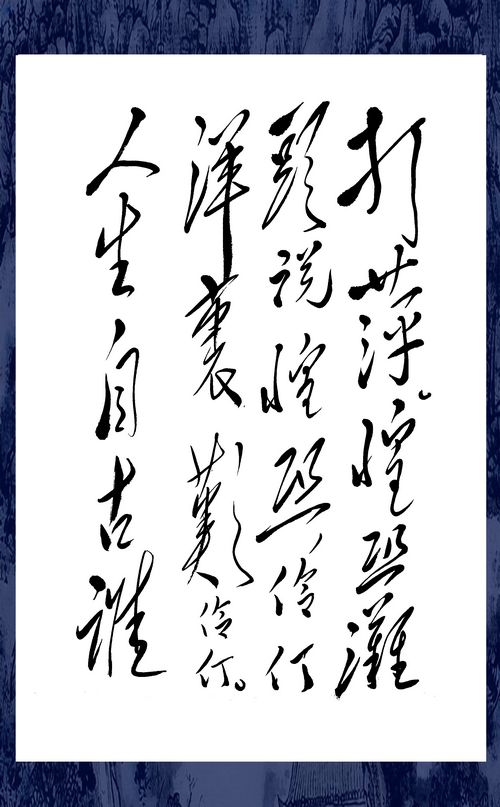 打萍。惶恐灘
頭说惶恐伶仃
洋裏歎伶仃。
人生自古誰